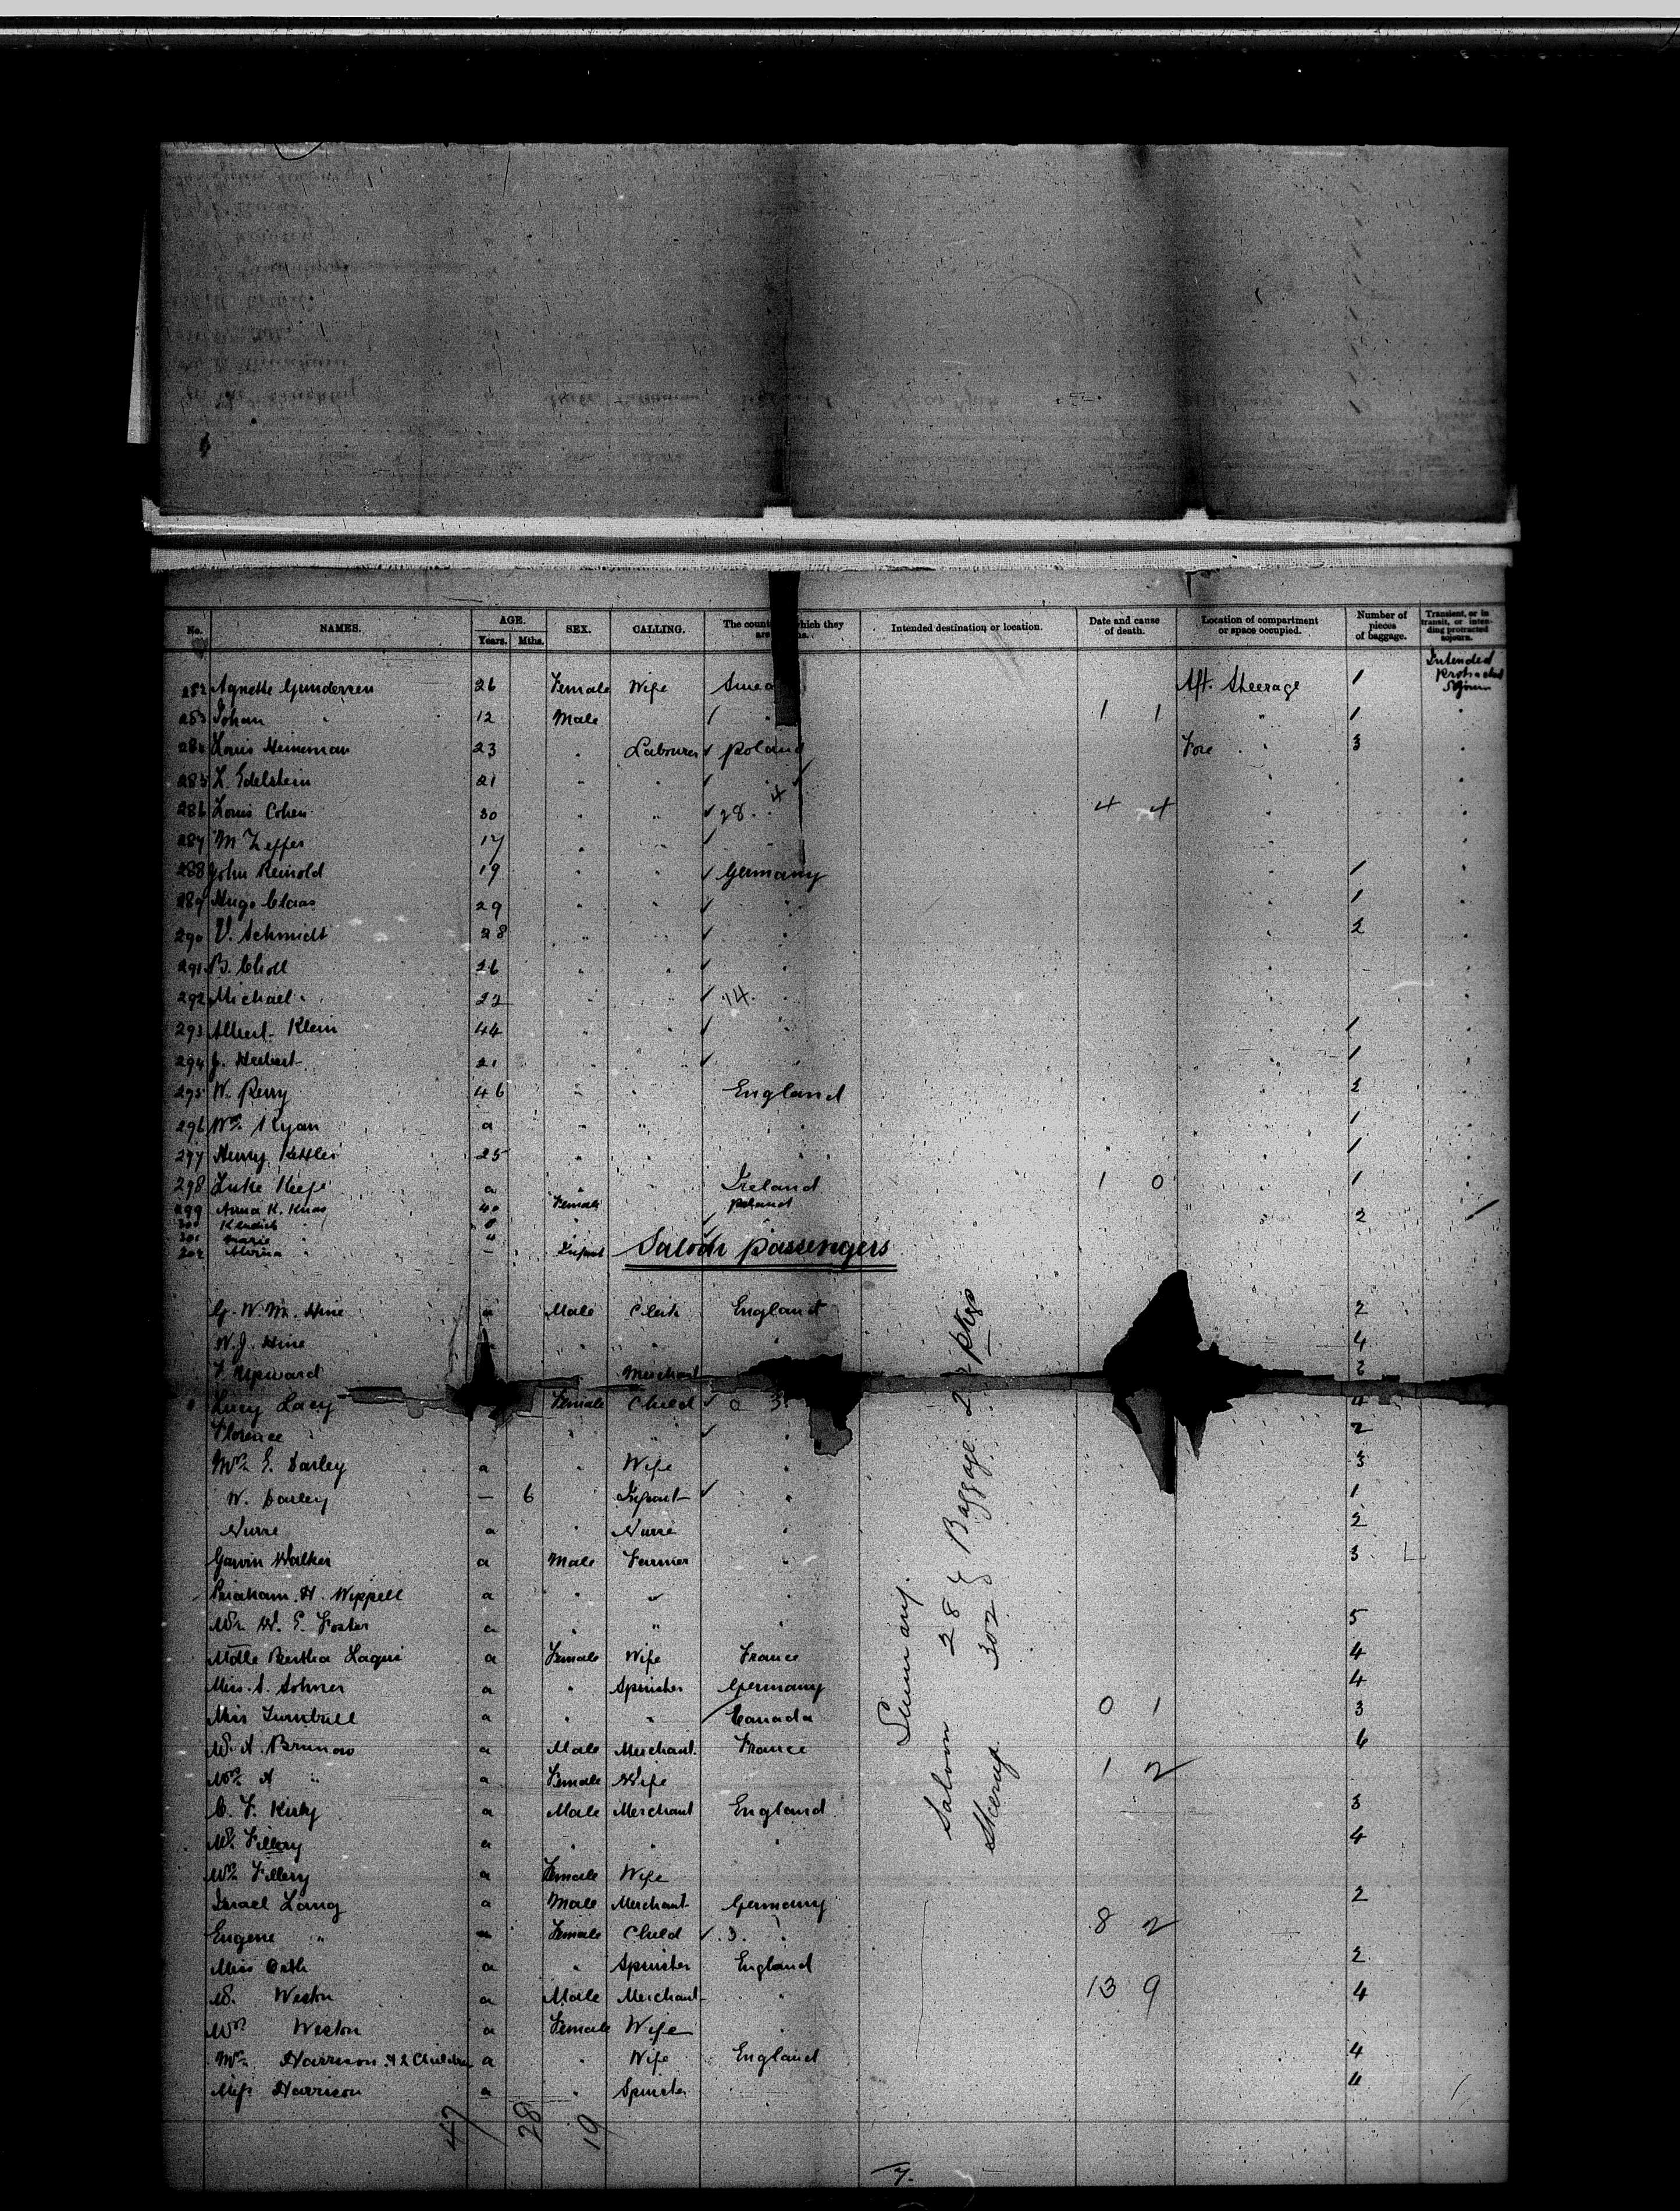 No. NAMES. AGE. Years. Mths. SEX. CALLING. The count which they are Intended destination or location. Date and cause of death. Location of compartment or space occupied. Number of pieces of baggage. Transient, or in transit, or intending protracted sojourn.
282 Agnethe Gundersen 26 Female Wife Aft. Steerage 1 Intended Protracted Sojourn
283 Johan " 12 Male 1 1 " 1 "
284 Louis Heineman 23 " Labourer Poland Fore " 3 "
285 L. Edelstein 21 " " "
286 Louis Cohen 30 " " 28. 4 4 4
287 M Zeffer 17 " "
288 John Reinold 19 " " Germany 1
289 Hugo Claas 29 " " " 1
290 V. Schmidt 28 " " " 2
291 B. Choll 26 " " "
292 Michael " 22 " " 14.
293 Albert Klein 44 " " 1
294 J. Herbert 21 " " 1
295 W. Perry 46 " " England 2
296 Wm Ryan a " " " 1
297 Henry Kettler 25 " " " 1
298 Luke Keefe a " " Ireland 1 0 1
299 Anna K. Knas 40 Female Poland 2
300
301 Marie "
302 " — Infant
Saloon Passengers
G. W. M. Hine a Male Clerk England 2
W. J. Hine " " " 4
F Upward Merchant 2
Lucy Lacy Female Child 3 4
Florence " " " " 2
Mrs E. Darley a " Wife " 3
W. Darley — 6 Infant " 1
Nurse a " Nurse " 2
Gavin Walker a Male Farmer " 3
H. Wippell a " " "
Mr W. E. Foster a " " " 5
Mdlle Bertha Laqui a Female Wife France 4
Miss. S. Sohner a " Spinster Germany 4
Miss Turnbull a " " Canada 0 1 3
Mr. A. Brunow a Male Merchant. France 6
Mrs A " a Female Wife 1 2
C. F. Kirby a Male Merchant England 3
Mr. Fillery a " " " 4
Mrs Fillery a Female Wife
Israel Lang a Male Merchant Germany 2
Eugene " Female Child 3. " 8 2
Miss a " Spinster England 2
Mr. Weston a Male Merchant " 13 9 4
Mrs Weston a Female Wife "
Mrs Harrison & 2 Children a " Wife England 4
Miss Harrison a " Spinster 4
47 28 19
Summary.
Saloon 28 Baggage 2 pkgs
Steerage 302
7.